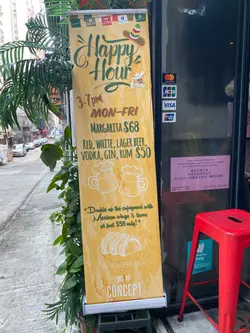 Happy
Hour
3-7pm
MON-FRI
MARGARITA $68
RED, WHITE, LAGER BEER,
VODKA, GIN, RUM $50
"Double up the enjoyment with
Mexican wings & tacos
at just $58 only!"
CONCEPT
VISA